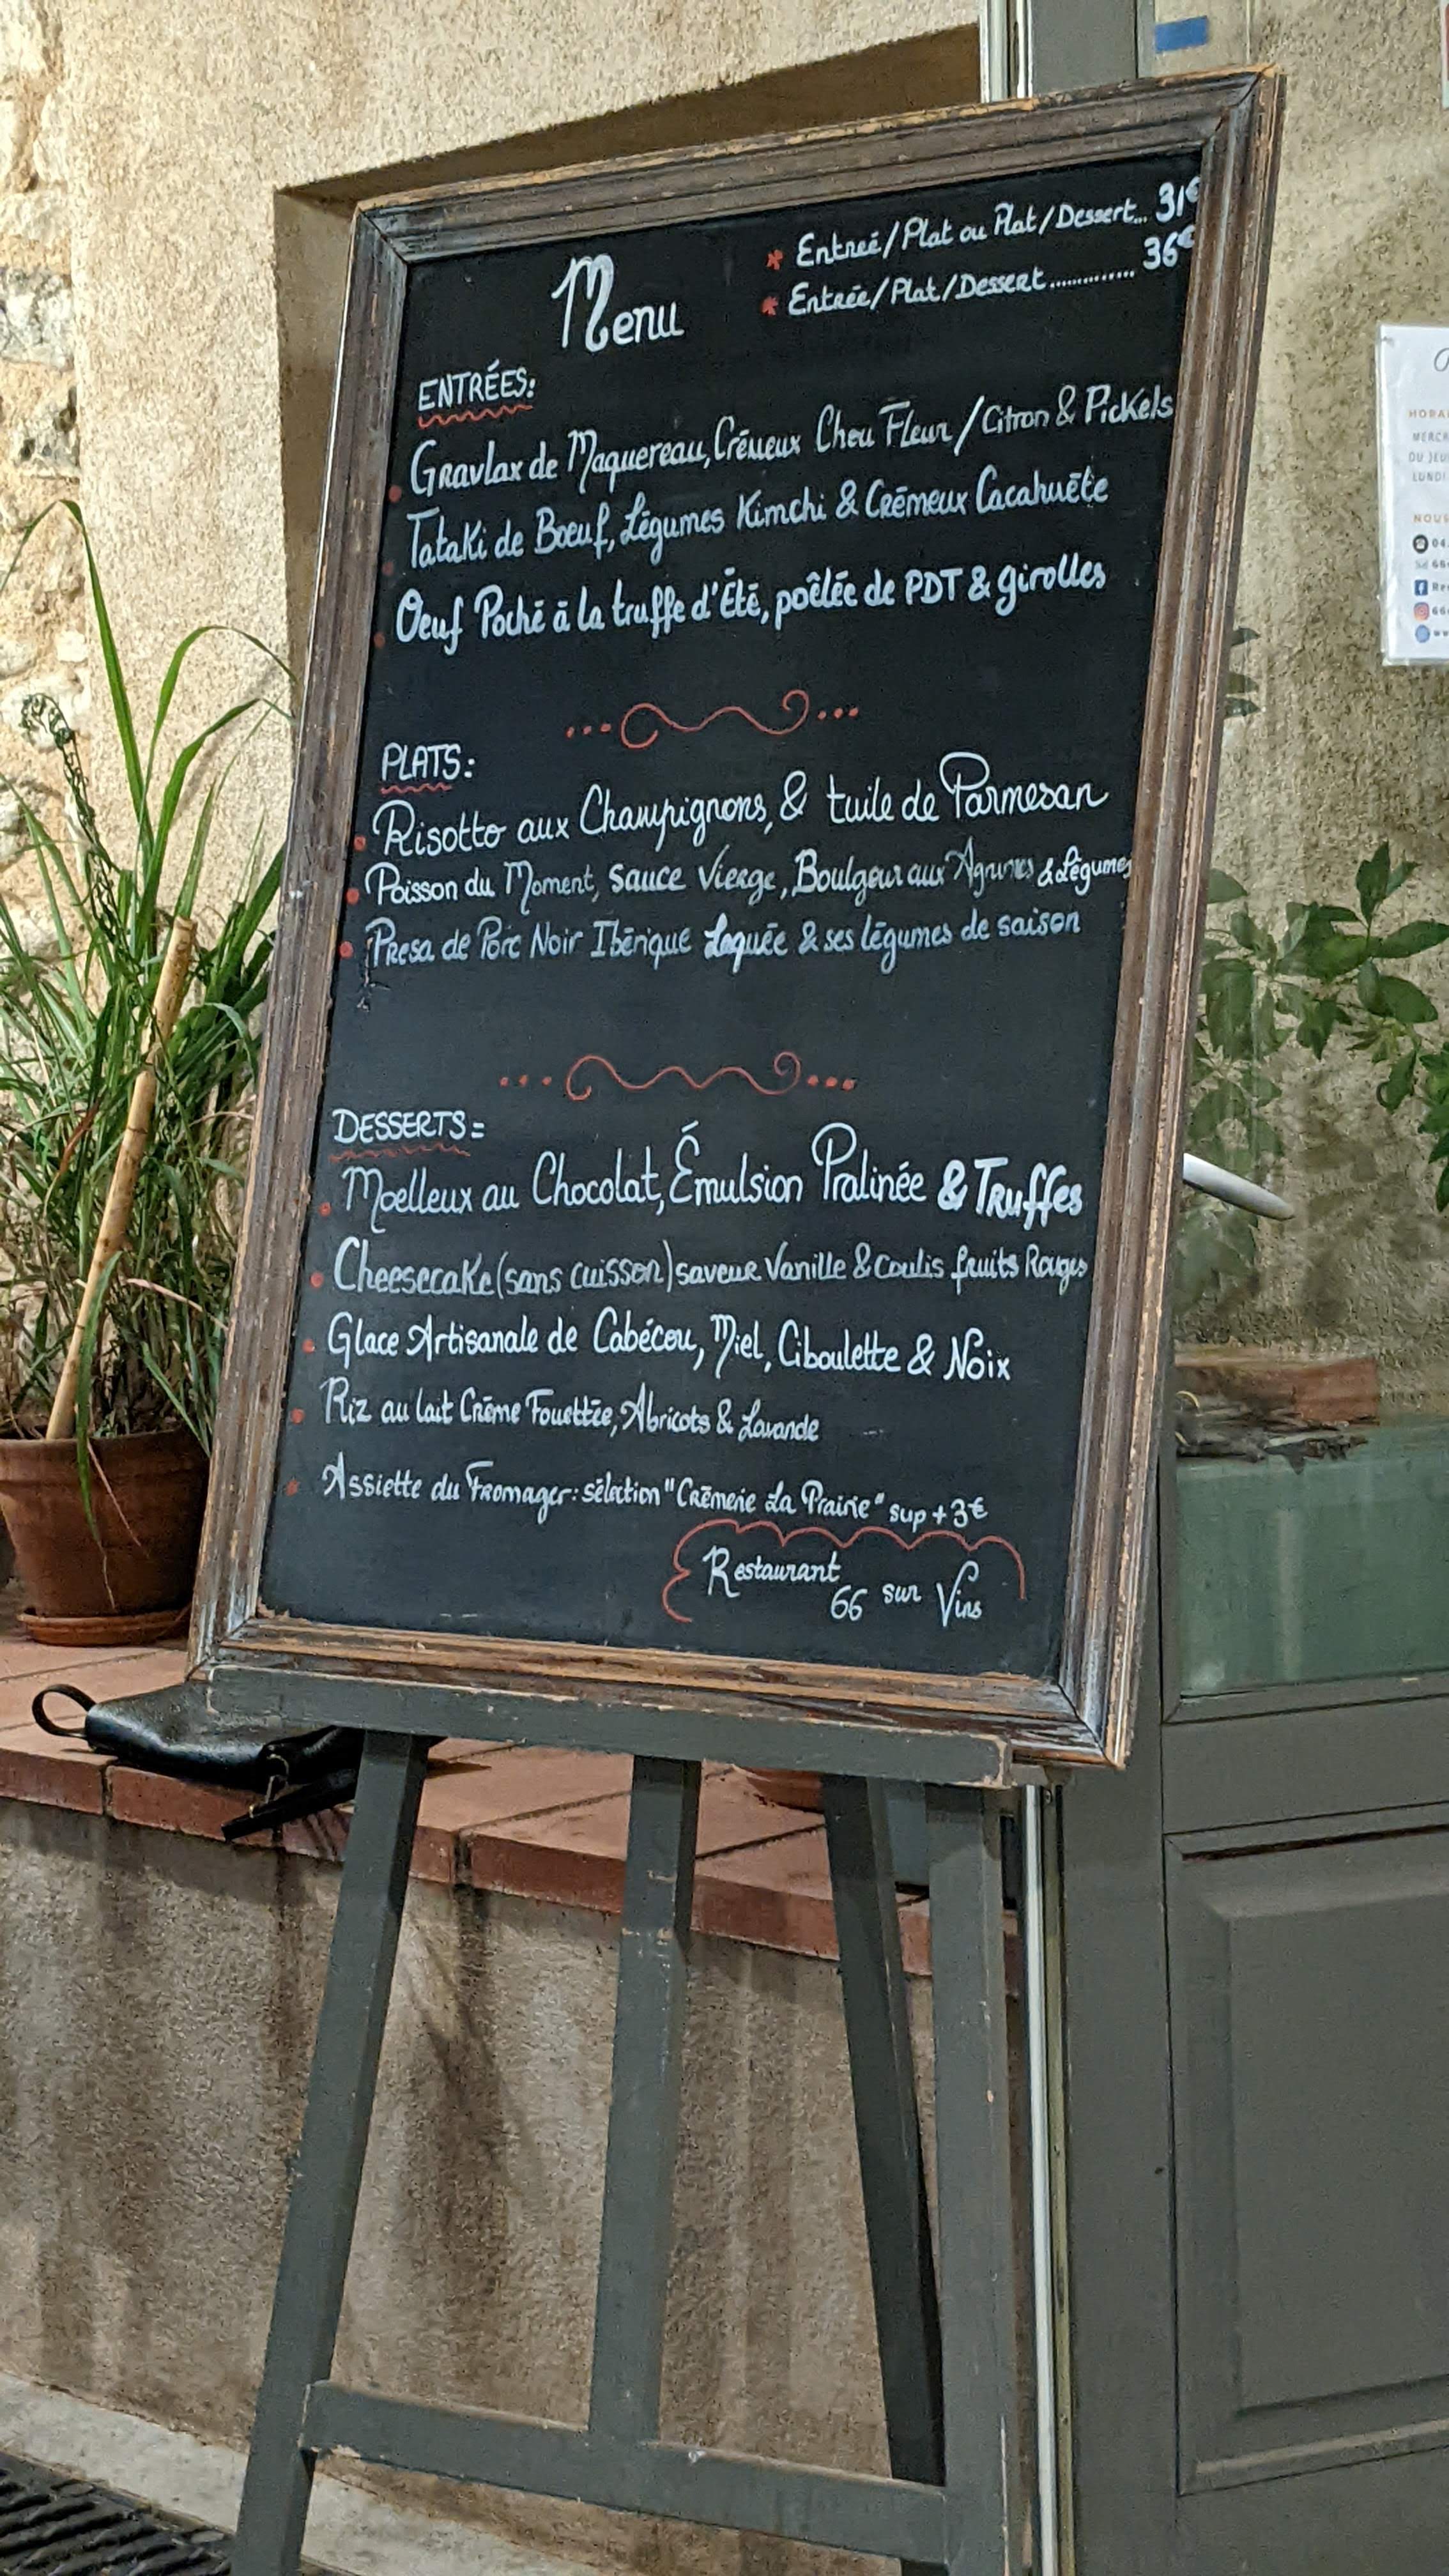 Menu
* Entreé/Plat ou Plat/Dessert... 31€
* Entrée/Plat/Dessert.............. 36€
ENTRÉES:
Gravlax de Maquereau, Crémeux Chou Fleur / Citron & Pickels
Tataki de Boeuf, Légumes Kimchi & Crémeux Cacahuète
Oeuf Poché à la truffe d'Été, poêlée de PDT & girolles
PLATS:
Risotto aux Champignons, & tuile de Parmesan
Poisson du Moment, Sauce Vierge, Boulgour aux Agrumes & Légumes
Presa de Porc Noir Ibérique Laquée & ses légumes de saison
DESSERTS=
Moelleux au Chocolat, Émulsion Pralinée & Truffes
Cheesecake (sans cuisson) saveur Vanille & coulis fruits Rouges
Glace Artisanale de Cabécou, Miel, Ciboulette & Noix
Riz au lait Crème Fouettée, Abricots & Lavande
* Assiette du Fromager: sélection "Crèmerie La Prairie" sup + 3€
Restaurant
66 sur Vins
HORA
MERCR
DU JEU
LUNDI
NOUS
04.